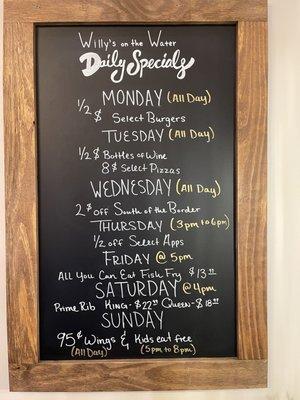 Willy's on the Water
Daily Specials
MONDAY (All Day)
1/2 $ Select Burgers
TUESDAY (All Day)
1/2 $ Bottles of Wine
8 $ Select Pizzas
WEDNESDAY (All Day)
2 $ off South of the Border
THURSDAY (3pm to 6pm)
1/2 off Select Apps
FRIDAY @ 5pm
All You Can Eat Fish Fry $13.95
SATURDAY @ 4pm
Prime Rib King - $22.95 Queen - $18.95
SUNDAY
95¢ Wings & Kids eat free
(All Day) (5pm to 8pm)